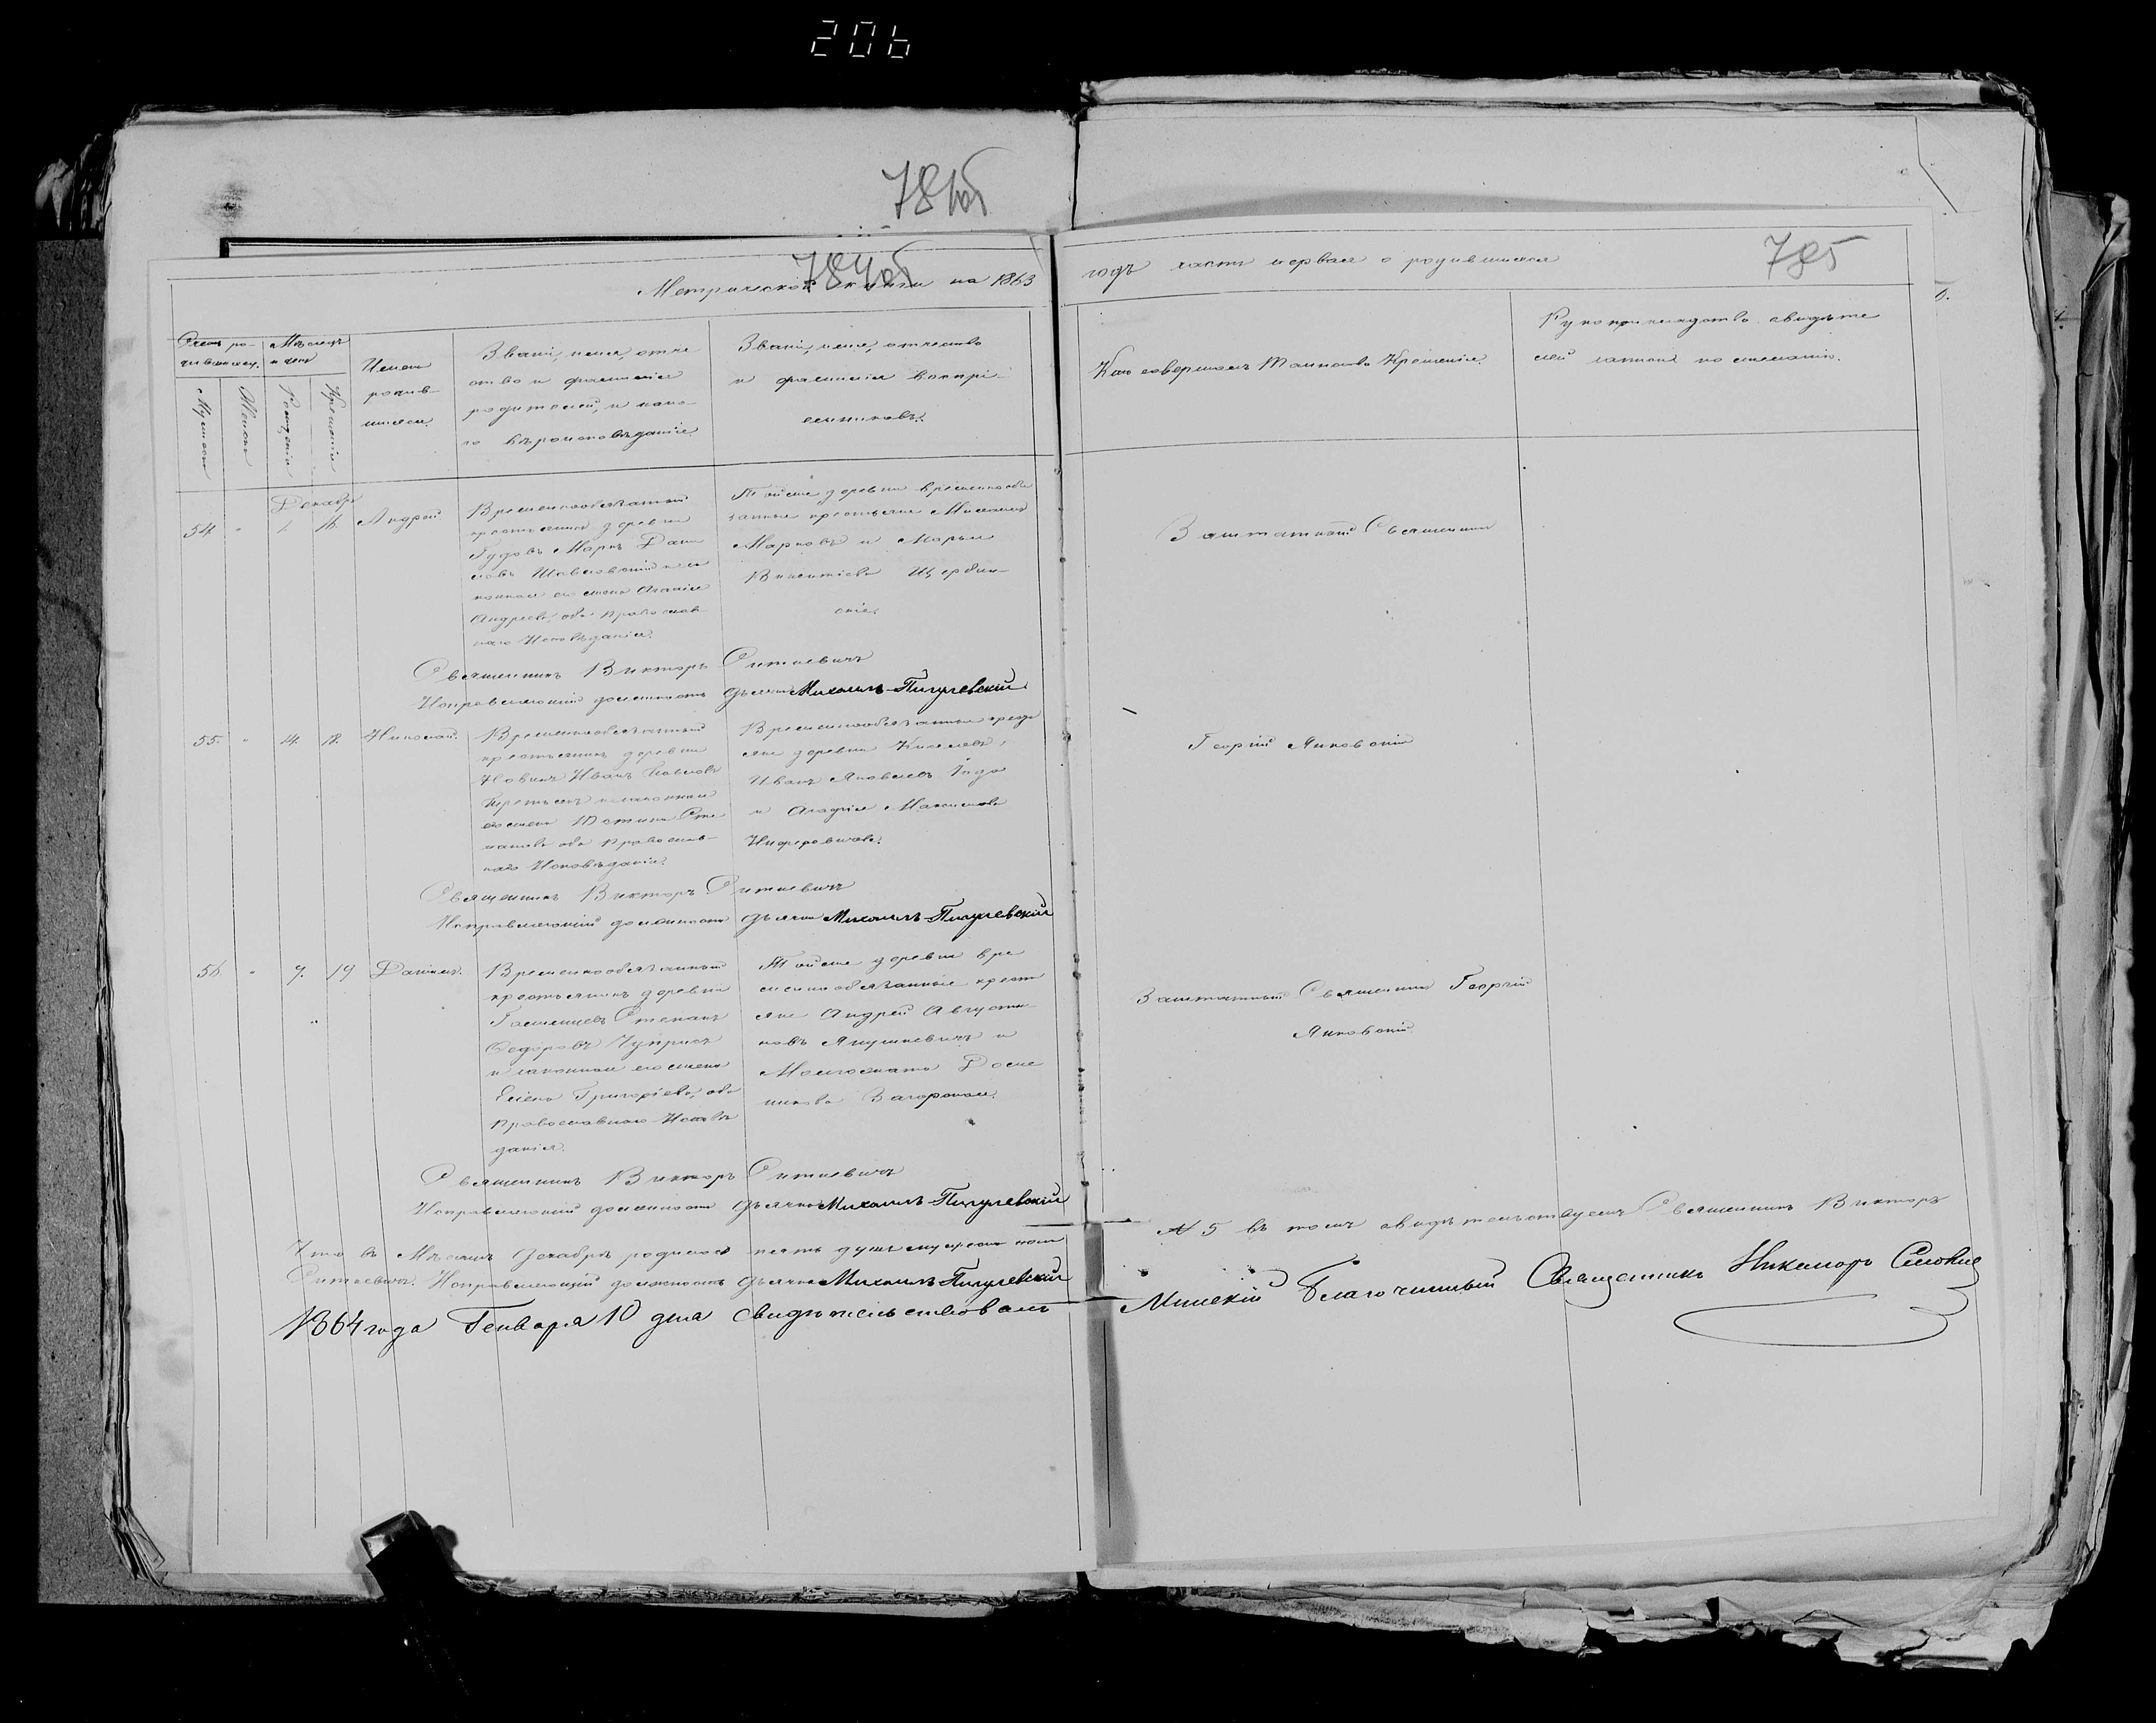 206
781об
784об
785
Метрической книги на 1863
годъ часть первая о родившихся
Счетъ ро-
дившихся.
Мѣсяцъ
и день
Мужеск
Женск
Рожденія
Крещенія
Имена
родив-
шихся.
Званіе, имя, отче
ство и фамилія
родителей, и како-
го вѣроисповѣданія.
Званіе, имя, отчество
и фамилія воспрі-
емниковъ.
Кто совершалъ Таинство Крещенія.
Рукоприкладство свидѣте
лей записи по желанію.
Декабрь
54. " 16. Андрей.
Временнообязанный
крестьянинъ деревни
Маркъ Дани
ловъ и за
конная его жена Агафія
Андреева, оба православ
наго Исповѣданія.
Тойже деревни временнообя
занные крестьяне Михаилъ
Марковъ и Марья
Викентіева Щербин-
скіе.
Заштатный Священникъ
Священникъ Викторъ Ситкевичъ
Исправляющій должность дьячка Михаилъ Пигулевскій
55. " 14. 18. Николай.
Временнообязанный
крестьянинъ деревни
Новинъ Иванъ Павловъ
и законная
его жена Сте
панова оба православ-
наго Исповѣданія.
Временнообязанные кресть
яне деревни
Иванъ Яковлевъ
и Агафія Максимова
Георгій Янковскій
Священникъ Викторъ Ситкевичъ
Исправляющій должность дьячка Михаилъ Пигулевскій
56 " 7. 19 Даніилъ.
Временнообязанный
крестьянинъ деревни
Степанъ
Федоровъ Чуприсъ
и законная его жена
Елена Григорієва, оба
православнаго Исповѣ
данія.
Тойже деревни вре
меннообязанные кресть
яне Андрей Августи
новъ Янушкевичъ и
Доме
никова
Заштатный Священникъ Георгій
Янковскій
Священникъ Викторъ Ситкевичъ
Исправляющій должность дьячка Михаилъ Пигулевскій
Что въ Мѣсяцѣ Декабрѣ родилось пять душъ мужеска пола
№ 5 въ томъ свидѣтельствуемъ Священникъ Викторъ
Ситкевичъ. Исправляющій должность дьячка Михаилъ Пигулевскій
1864 года Генваря 10 дня свидѣтельствовалъ
Минскій Благочинный Священникъ Никаноръ